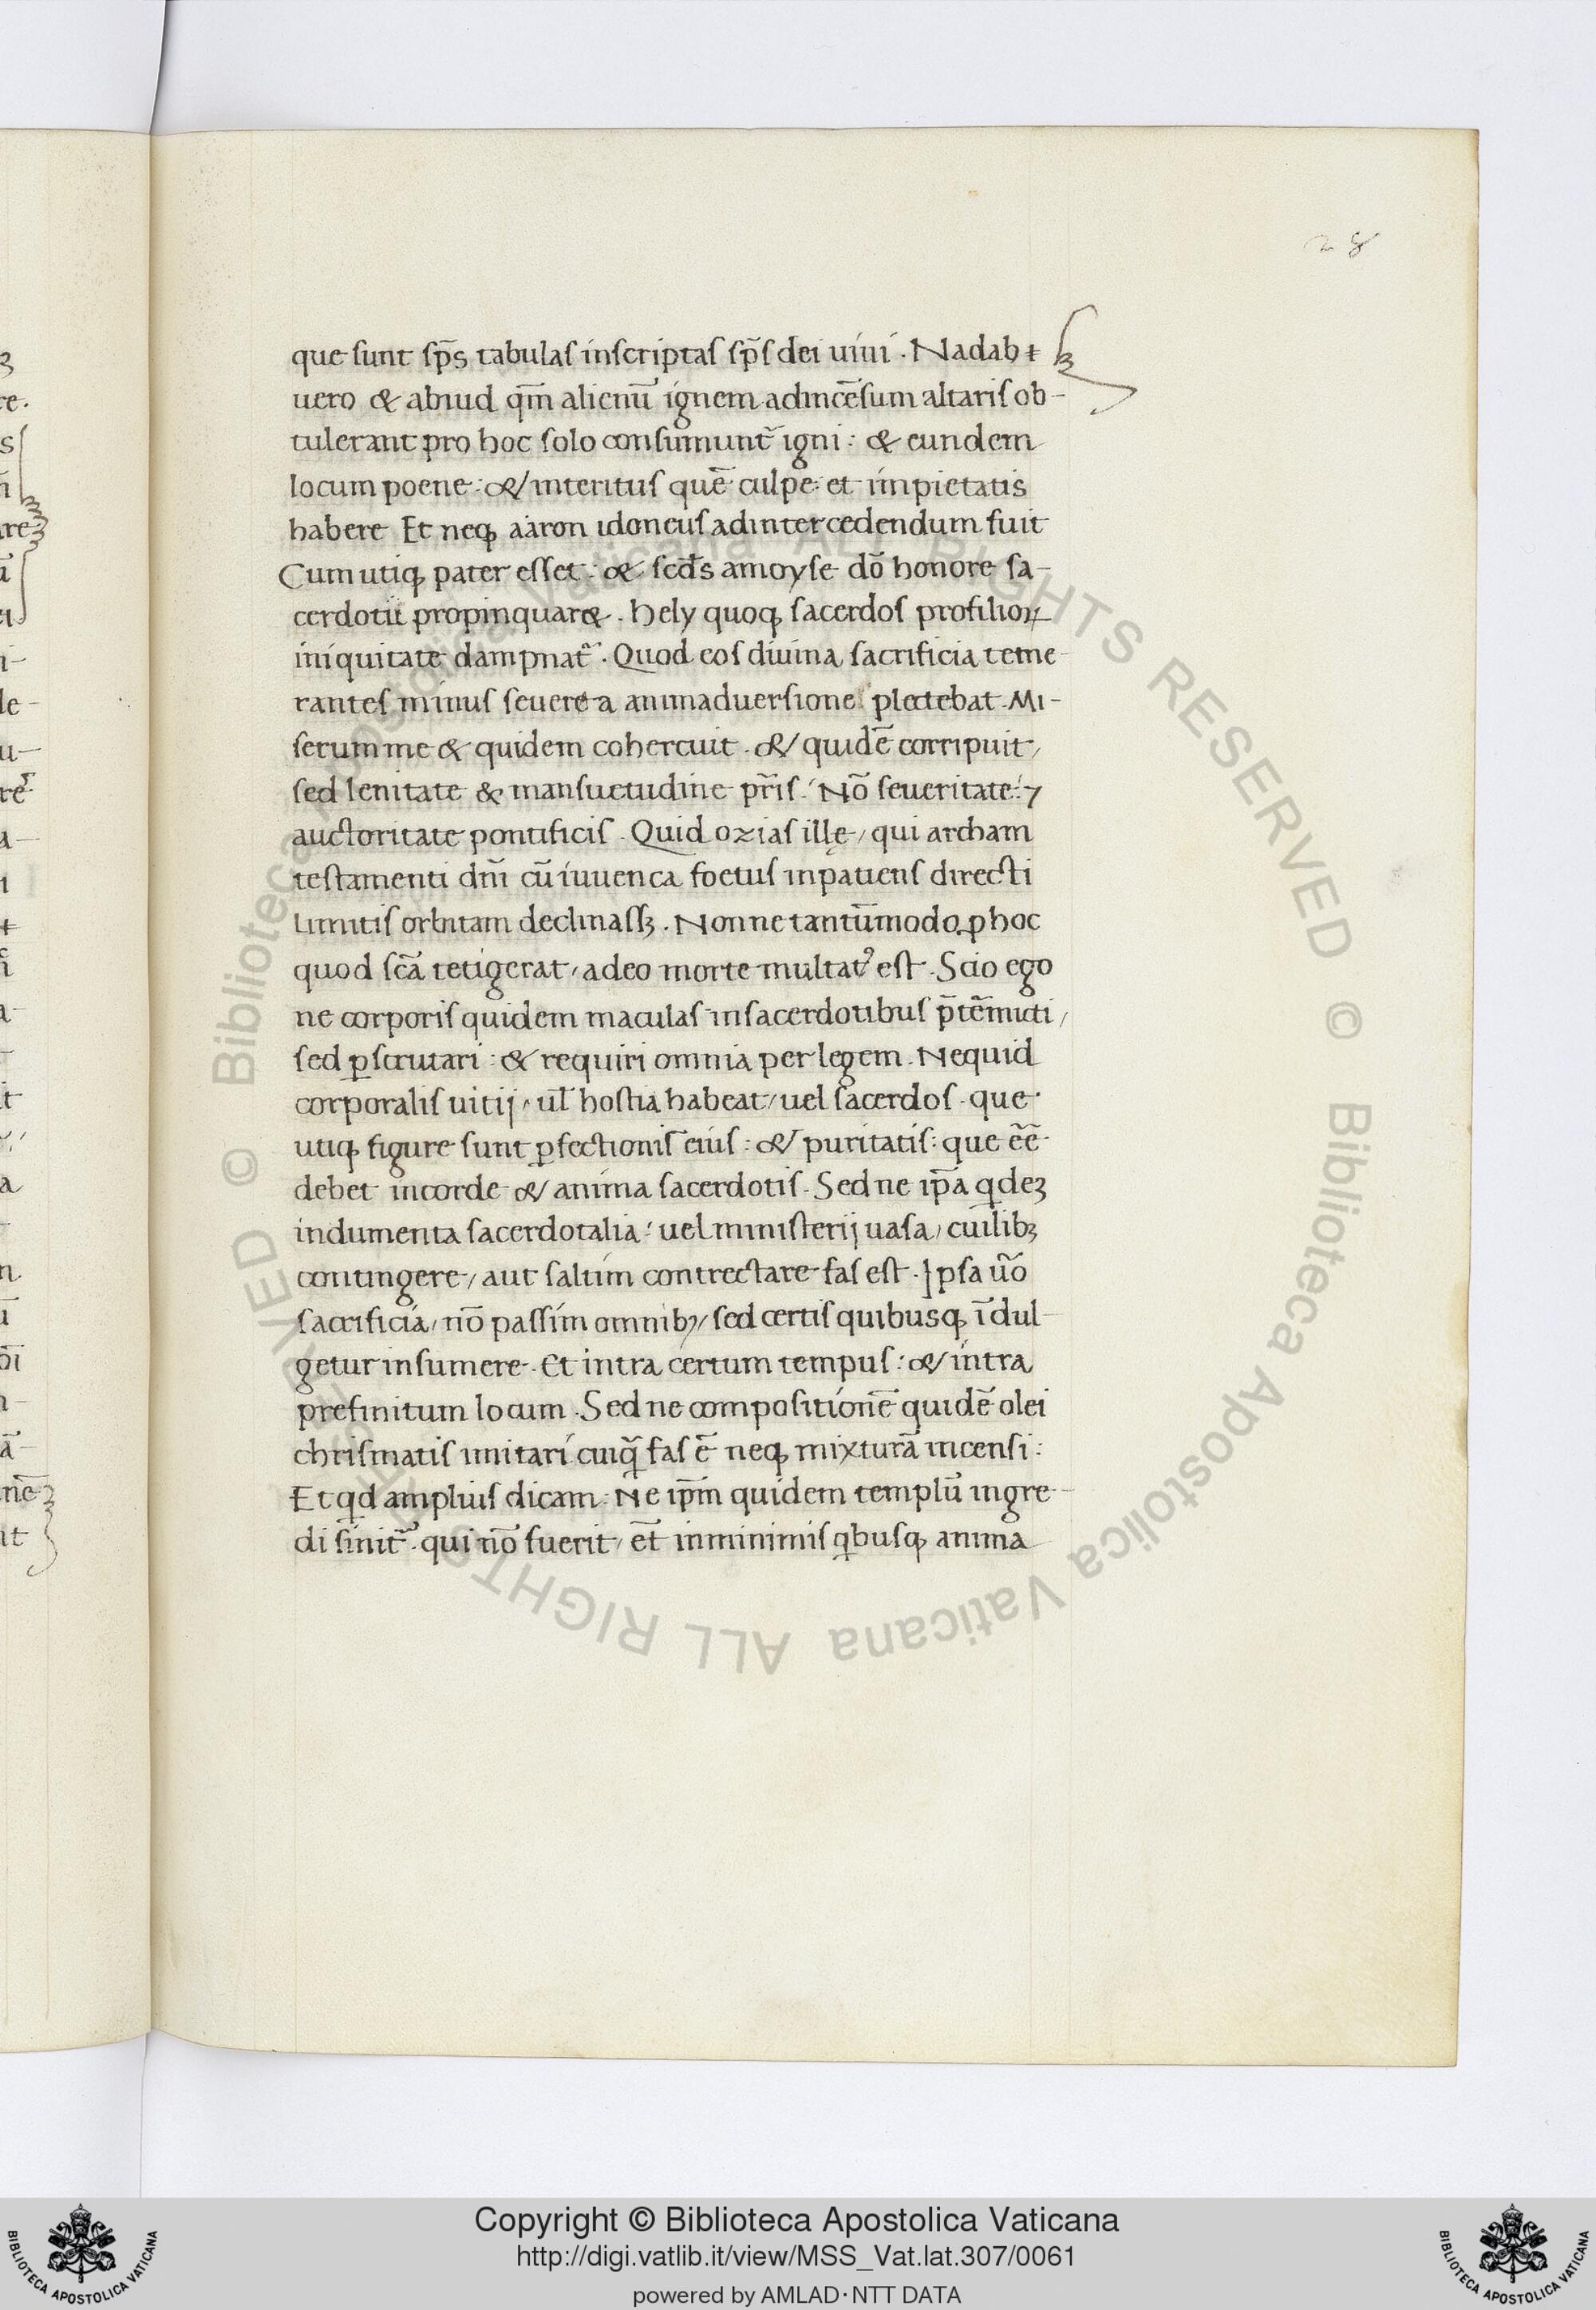 28
que sunt sp̄s tabulas inscriptas sp̄s dei uiui . Nadab
uero & abiud qm̄ alienū ignem ad incēsum altaris ob-
tulerant pro hoc solo consumunt᷑ igni : & eundem
locum poene : & interitus quē culpe et impietatis
habere Et neqꝫ aaron idoneus ad intercedendum fuit
Cum utiqꝫ pater esset : & scd̄s a moyse dō honore sa-
cerdotii propinquar& . hely quoqꝫ sacerdos pro filioꝝ
iniquitate dampnat᷑ . Quod eos diuina sacrificia teme-
rantes minus seuere a animaduersione plectebat . Mi-
serum me & quidem cohercuit . & quidē corripuit /
sed lenitate & mansuetudine pr̄is : Nō seueritate : ⁊
auctoritate pontificis . Quid ozias ille / qui archam
testamenti dn̄i cū iuuenca foetus inpatiens directi
limitis orbitam declinassꝫ . Nonne tantūmodo ꝓ hoc
quod scā tetigerat / adeo morte multatꝰ est . Scio ego
ne corporis quidem maculas in sacerdotibus p̄tēmicti /
sed ꝑscrutari : & requiri omnia per legem . Nequid
corporalis uitij / ul̄ hostia habeat / uel sacerdos . que
utiqꝫ figure sunt ꝑfectionis eius : & puritatis : que ēē
debet in corde & anima sacerdotis . Sed ne ip̄a qͥdeꝫ
indumenta sacerdotalia : uel ministerij uasa / cuilibꝫ
contingere / aut saltim contrectare fas est . Ipsa ūo
sacrificia / nō passim omnibꝫ / sed certis quibusqꝫ īdul-
getur insumere . Et intra certum tempus : & intra
prefinitum locum . Sed ne compositionē quidē olei
chrismatis imitari cuiqͣ̄ fas ē neqꝫ mixturā incensi :
Et qͥd amplius dicam : Ne ip̄m quidem templū ingre-
di sinit᷑ . qui nō fuerit / et̄ in minimis qͥbusqꝫ anima
Copyright © Biblioteca Apostolica Vaticana
http://digi.vatlib.it/view/MSS_Vat.lat.307/0061
powered by AMLAD·NTT DATA